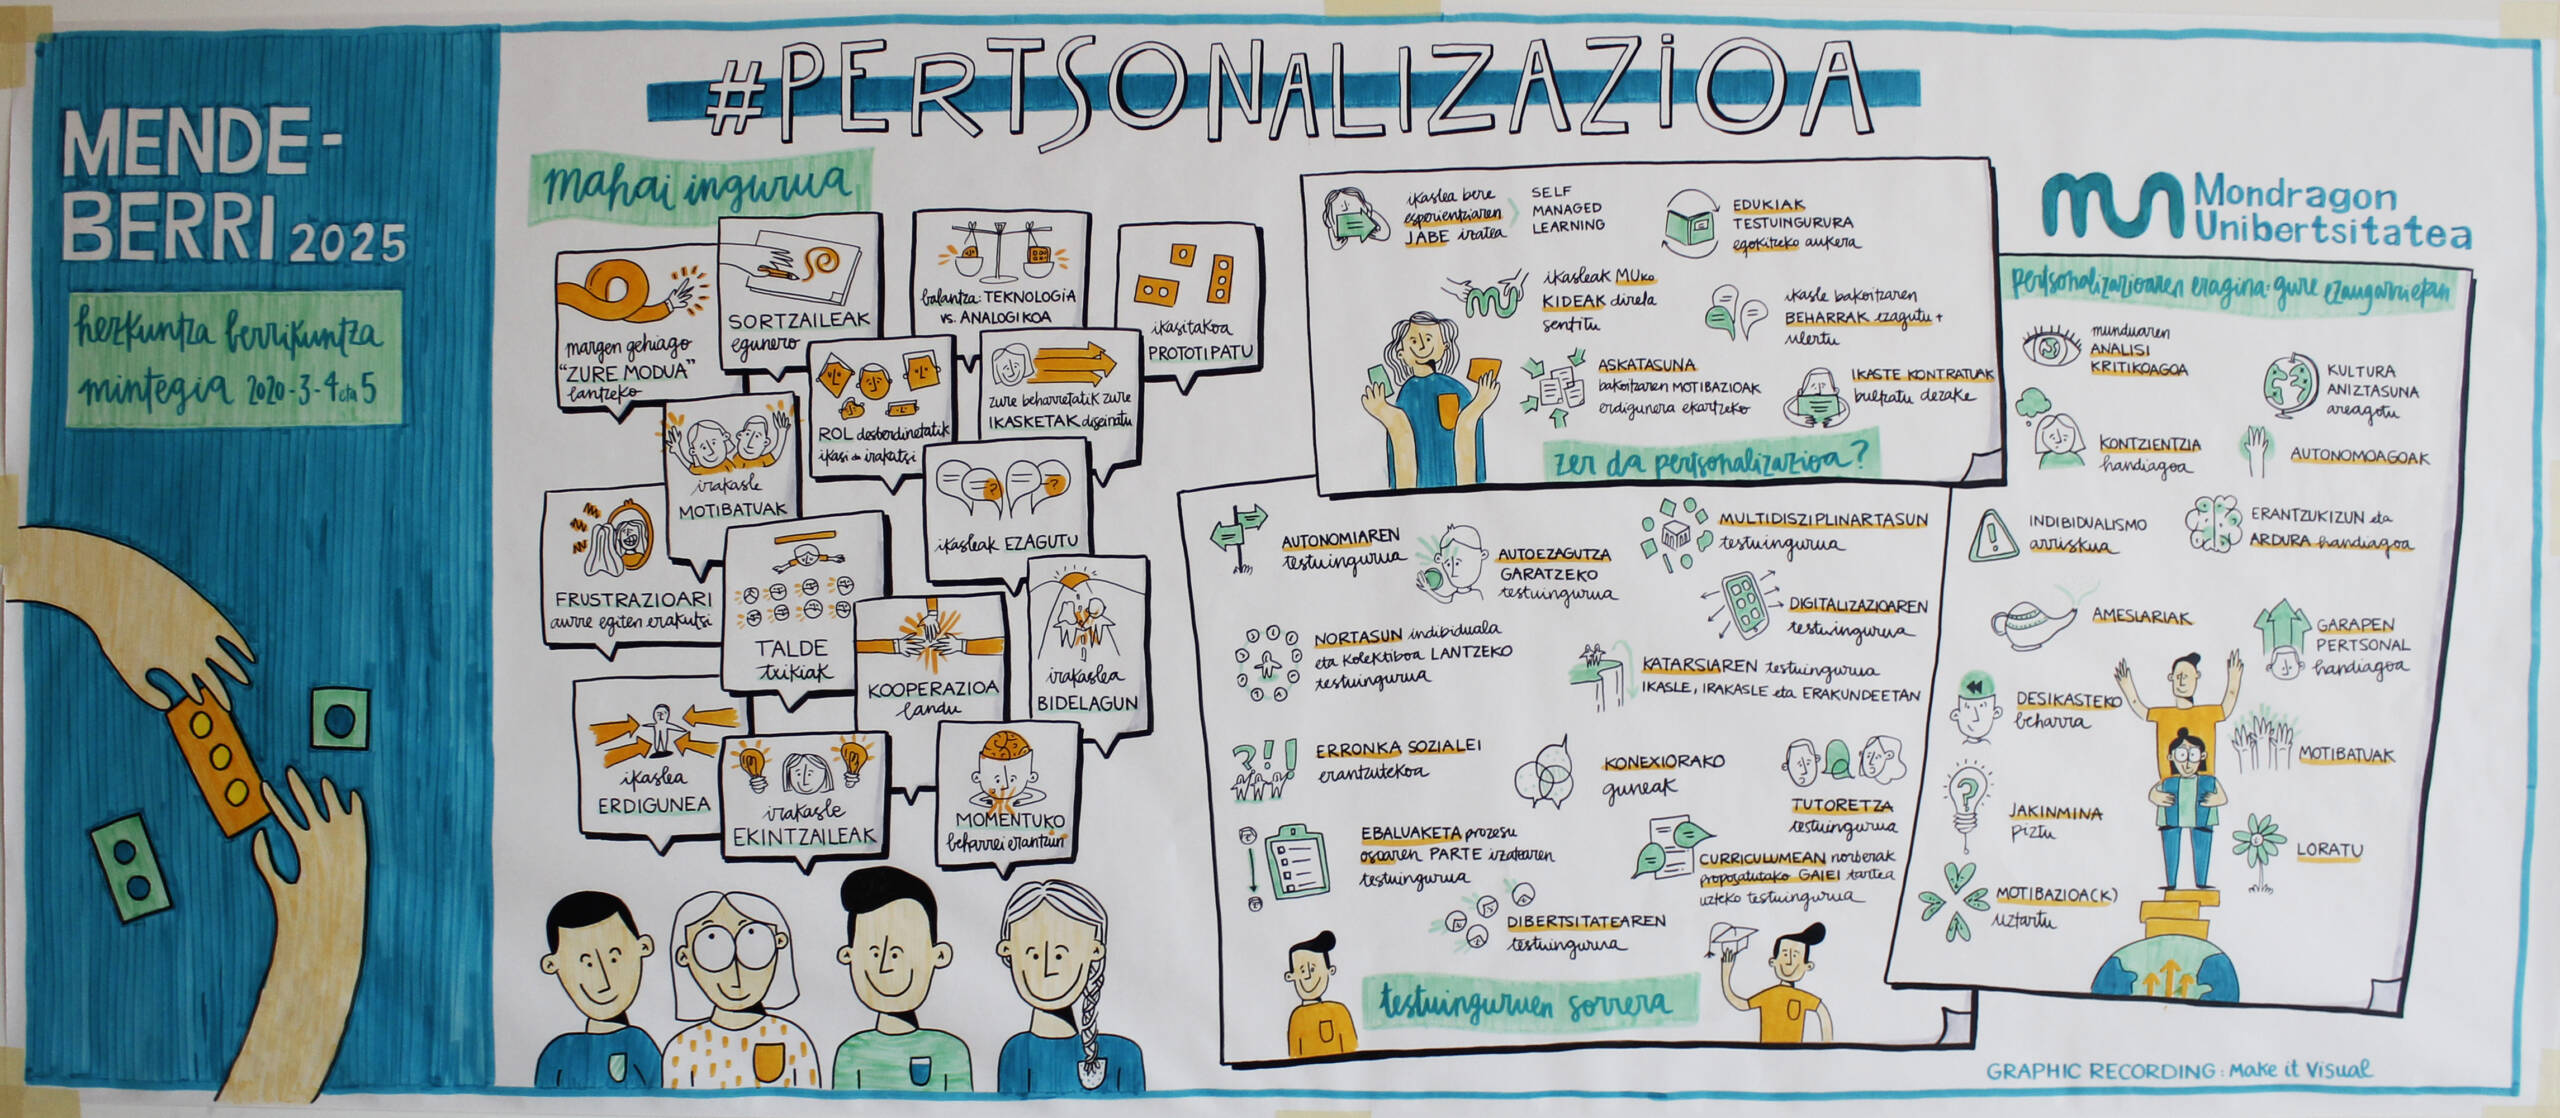 MENDE-
BERRI 2025
hezkuntza berrikuntza
mintegia 2020-3-4 eta 5
#PERTSONALIZAZIOA
mahai ingurua
margen gehiago
"ZURE MODUA"
lantzeko
SORTZAILEAK
egunero
balantza: TEKNOLOGIA
vs. ANALOGIKOA
ikasitakoa
PROTOTIPATU
irakasle
MOTIBATUAK
ROL desberdinetatik
ikasi da irakutsi
zure beharretatik zure
IKASKETAK diseinatu
ikasleak EZAGUTU
FRUSTRAZIOARI
aurre egiten erakutsi
TALDE
txikiak
KOOPERAZIOA
landu
irakaslea
BIDELAGUN
ikaslea
ERDIGUNEA
irakasle
EKINTZAILEAK
MOMENTUKO
beharrei erantzun
ikaslea bere
esperientziaren
JABE izatea
SELF
MANAGED
LEARNING
EDUKIAK
TESTUINGURURA
egokitzeko aukera
ikasleak MUko
KIDEAK direla
sentitu
ikasle bakoitzaren
BEHARRAK ezagutu +
ulertu
ASKATASUNA
bakoitzaren MOTIBAZIOAK
erdigunera ekartzeko
IKASTE KONTRATUAK
bultzatu dezake
zer da pertsonalizazioa?
AUTONOMIAREN
testuingurua
AUTOEZAGUTZA
GARATZEKO
testuingurua
MULTIDISZIPLINARTASUN
testuingurua
DIGITALIZAZIOAREN
testuingurua
NORTASUN indibiduala
eta kolektiboa LANTZEKO
testuingurua
KATARSIAREN testuingurua
IKASLE, IRAKASLE eta ERAKUNDEETAN
?!!
ERRONKA SOZIALEI
erantzutekoa
KONEXIORAKO
guneak
TUTORETZA
testuingurua
EBALUAKETA prozesu
osoaren PARTE izatearen
testuingurua
CURRICULUMEAN norberak
proposatutako GAIEI tartea
uzteko testuingurua
DIBERTSITATEAREN
testuingurua
testuinguruen sorrera
mun Mondragon
Unibertsitatea
pertsonalizazioaren eragina: gure ezaugarrietan
munduaren
ANALISI
KRITIKOAGOA
KULTURA
ANIZTASUNA
areagotu
KONTZIENTZIA
handiagoa
AUTONOMOAGOAK
INDIBIDUALISMO
arriskua
ERANTZUKIZUN eta
ARDURA handiagoa
AMESLARIAK
GARAPEN
PERTSONAL
handiagoa
DESIKASTEKO
beharra
MOTIBATUAK
JAKINMINA
piztu
LORATU
MOTIBAZIOA(K)
uztartu
GRAPHIC RECORDING: Make it Visual